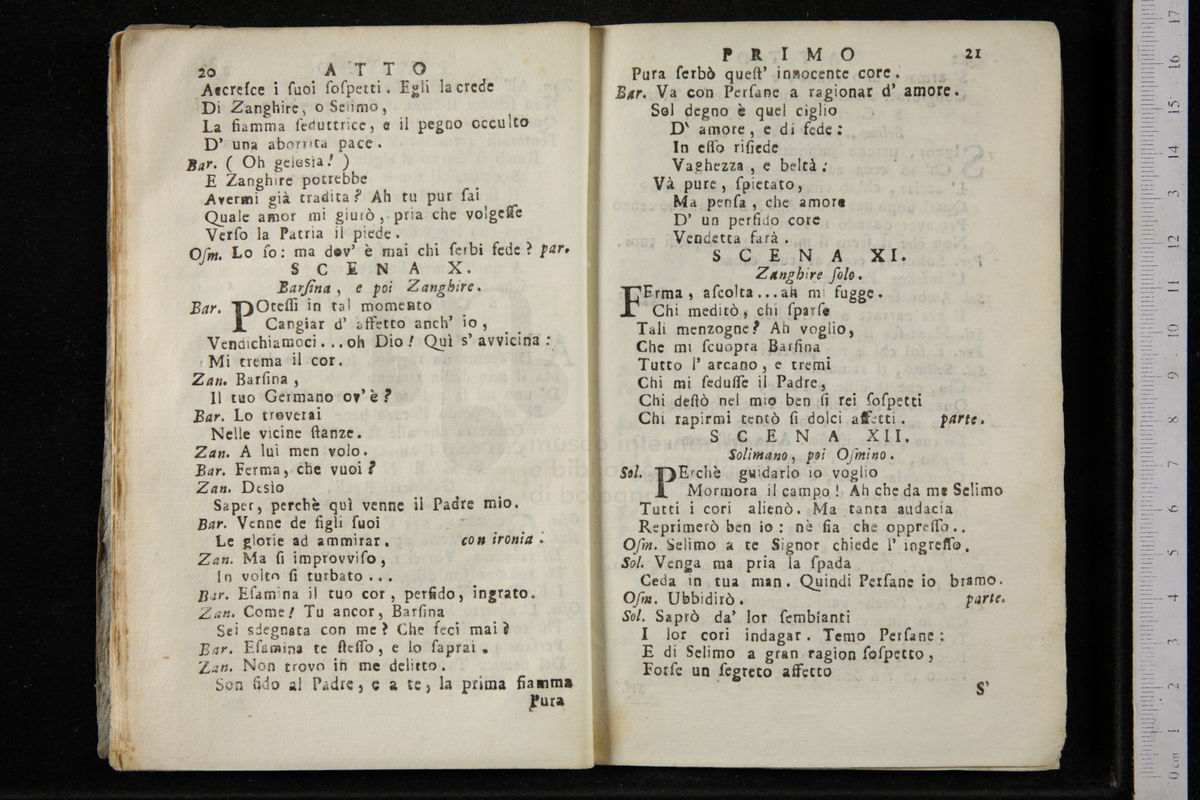 20 ATTO
Accresce i ſuoi ſoſpetti. Egli la crede
Di Zanghire, o Selimo,
La fiamma ſeduttrice, e il pegno occulto
D' una aborrita pace.
Bar. ( Oh gelosia! )
E Zanghire potrebbe
Avermi già tradita? Ah tu pur ſai
Quale amor mi giurò, pria che volgeſſe
Verſo la Patria il piede.
Oſm. Lo ſo: ma dov' è mai chi ſerbi fede? par.
SCENA X.
Barſina, e poi Zanghire.
Bar. POteſſi in tal momento
Cangiar d' affetto anch' io,
Vendichiamoci...oh Dio! Quì s' avvicina:
Mi trema il cor.
Zan. Barſina,
Il tuo Germano ov' è?
Bar. Lo troverai
Nelle vicine ſtanze.
Zan. A lui men volo.
Bar. Ferma, che vuoi?
Zan. Desìo
Saper, perchè quì venne il Padre mio.
Bar. Venne de figli ſuoi
Le glorie ad ammirar. con ironia.
Zan. Ma ſi improvviſo,
In volto ſi turbato ...
Bar. Eſamina il tuo cor, perfido, ingrato.
Zan. Come! Tu ancor, Barſina
Sei sdegnata con me? Che feci mai?
Bar. Eſamina te ſteſſo, e lo ſaprai.
Zan. Non trovo in me delitto.
Son fido al Padre, e a te, la prima fiamma
Pura
PRIMO 21
Pura ſerbò queſt' innocente core.
Bar. Va con Perſane a ragionar d' amore.
Sol degno è quel ciglio
D' amore, e di fede:
In eſſo riſiede
Vaghezza, e beltà:
Và pure, ſpietato,
Ma penſa, che amore
D' un perfido core
Vendetta farà.
SCENA XI.
Zanghire ſolo.
FErma, aſcolta...ah mi fugge.
Chi meditò, chi ſparſe
Tali menzogne? Ah voglio,
Che mi ſcuopra Barſina
Tutto l' arcano, e tremi
Chi mi ſeduſſe il Padre,
Chi deſtò nel mio ben ſi rei ſoſpetti
Chi rapirmi tentò ſi dolci affetti. parte.
SCENA XII.
Solimano, poi Oſmino.
Sol. PErchè guidarlo io voglio
Mormora il campo! Ah che da me Selimo
Tutti i cori alienò. Ma tanta audacia
Reprimerò ben io: nè ſia che oppreſſo..
Oſm. Selimo a te Signor chiede l' ingreſſo.
Sol. Venga ma pria la ſpada
Ceda in tua man. Quindi Perſane io bramo.
Oſm. Ubbidirò. parte.
Sol. Saprò da' lor ſembianti
I lor cori indagar. Temo Perſane:
E di Selimo a gran ragion ſoſpetto,
Forſe un ſegreto affetto
S'